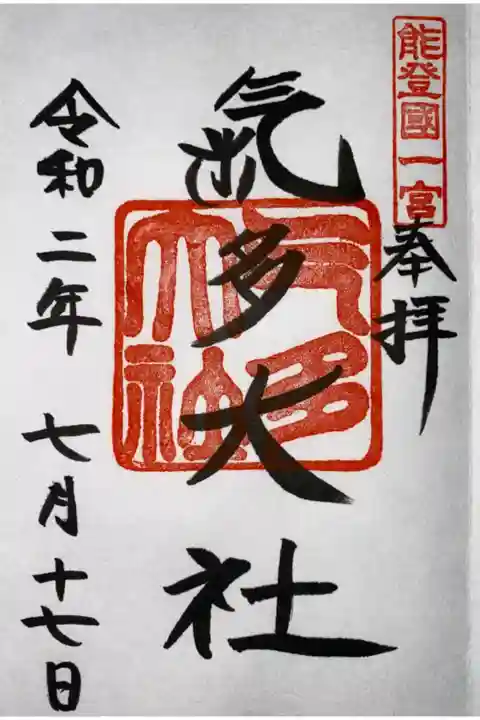 能登國一宮
奉拝
氣多大社
气多大社
令和二年 七月十七日